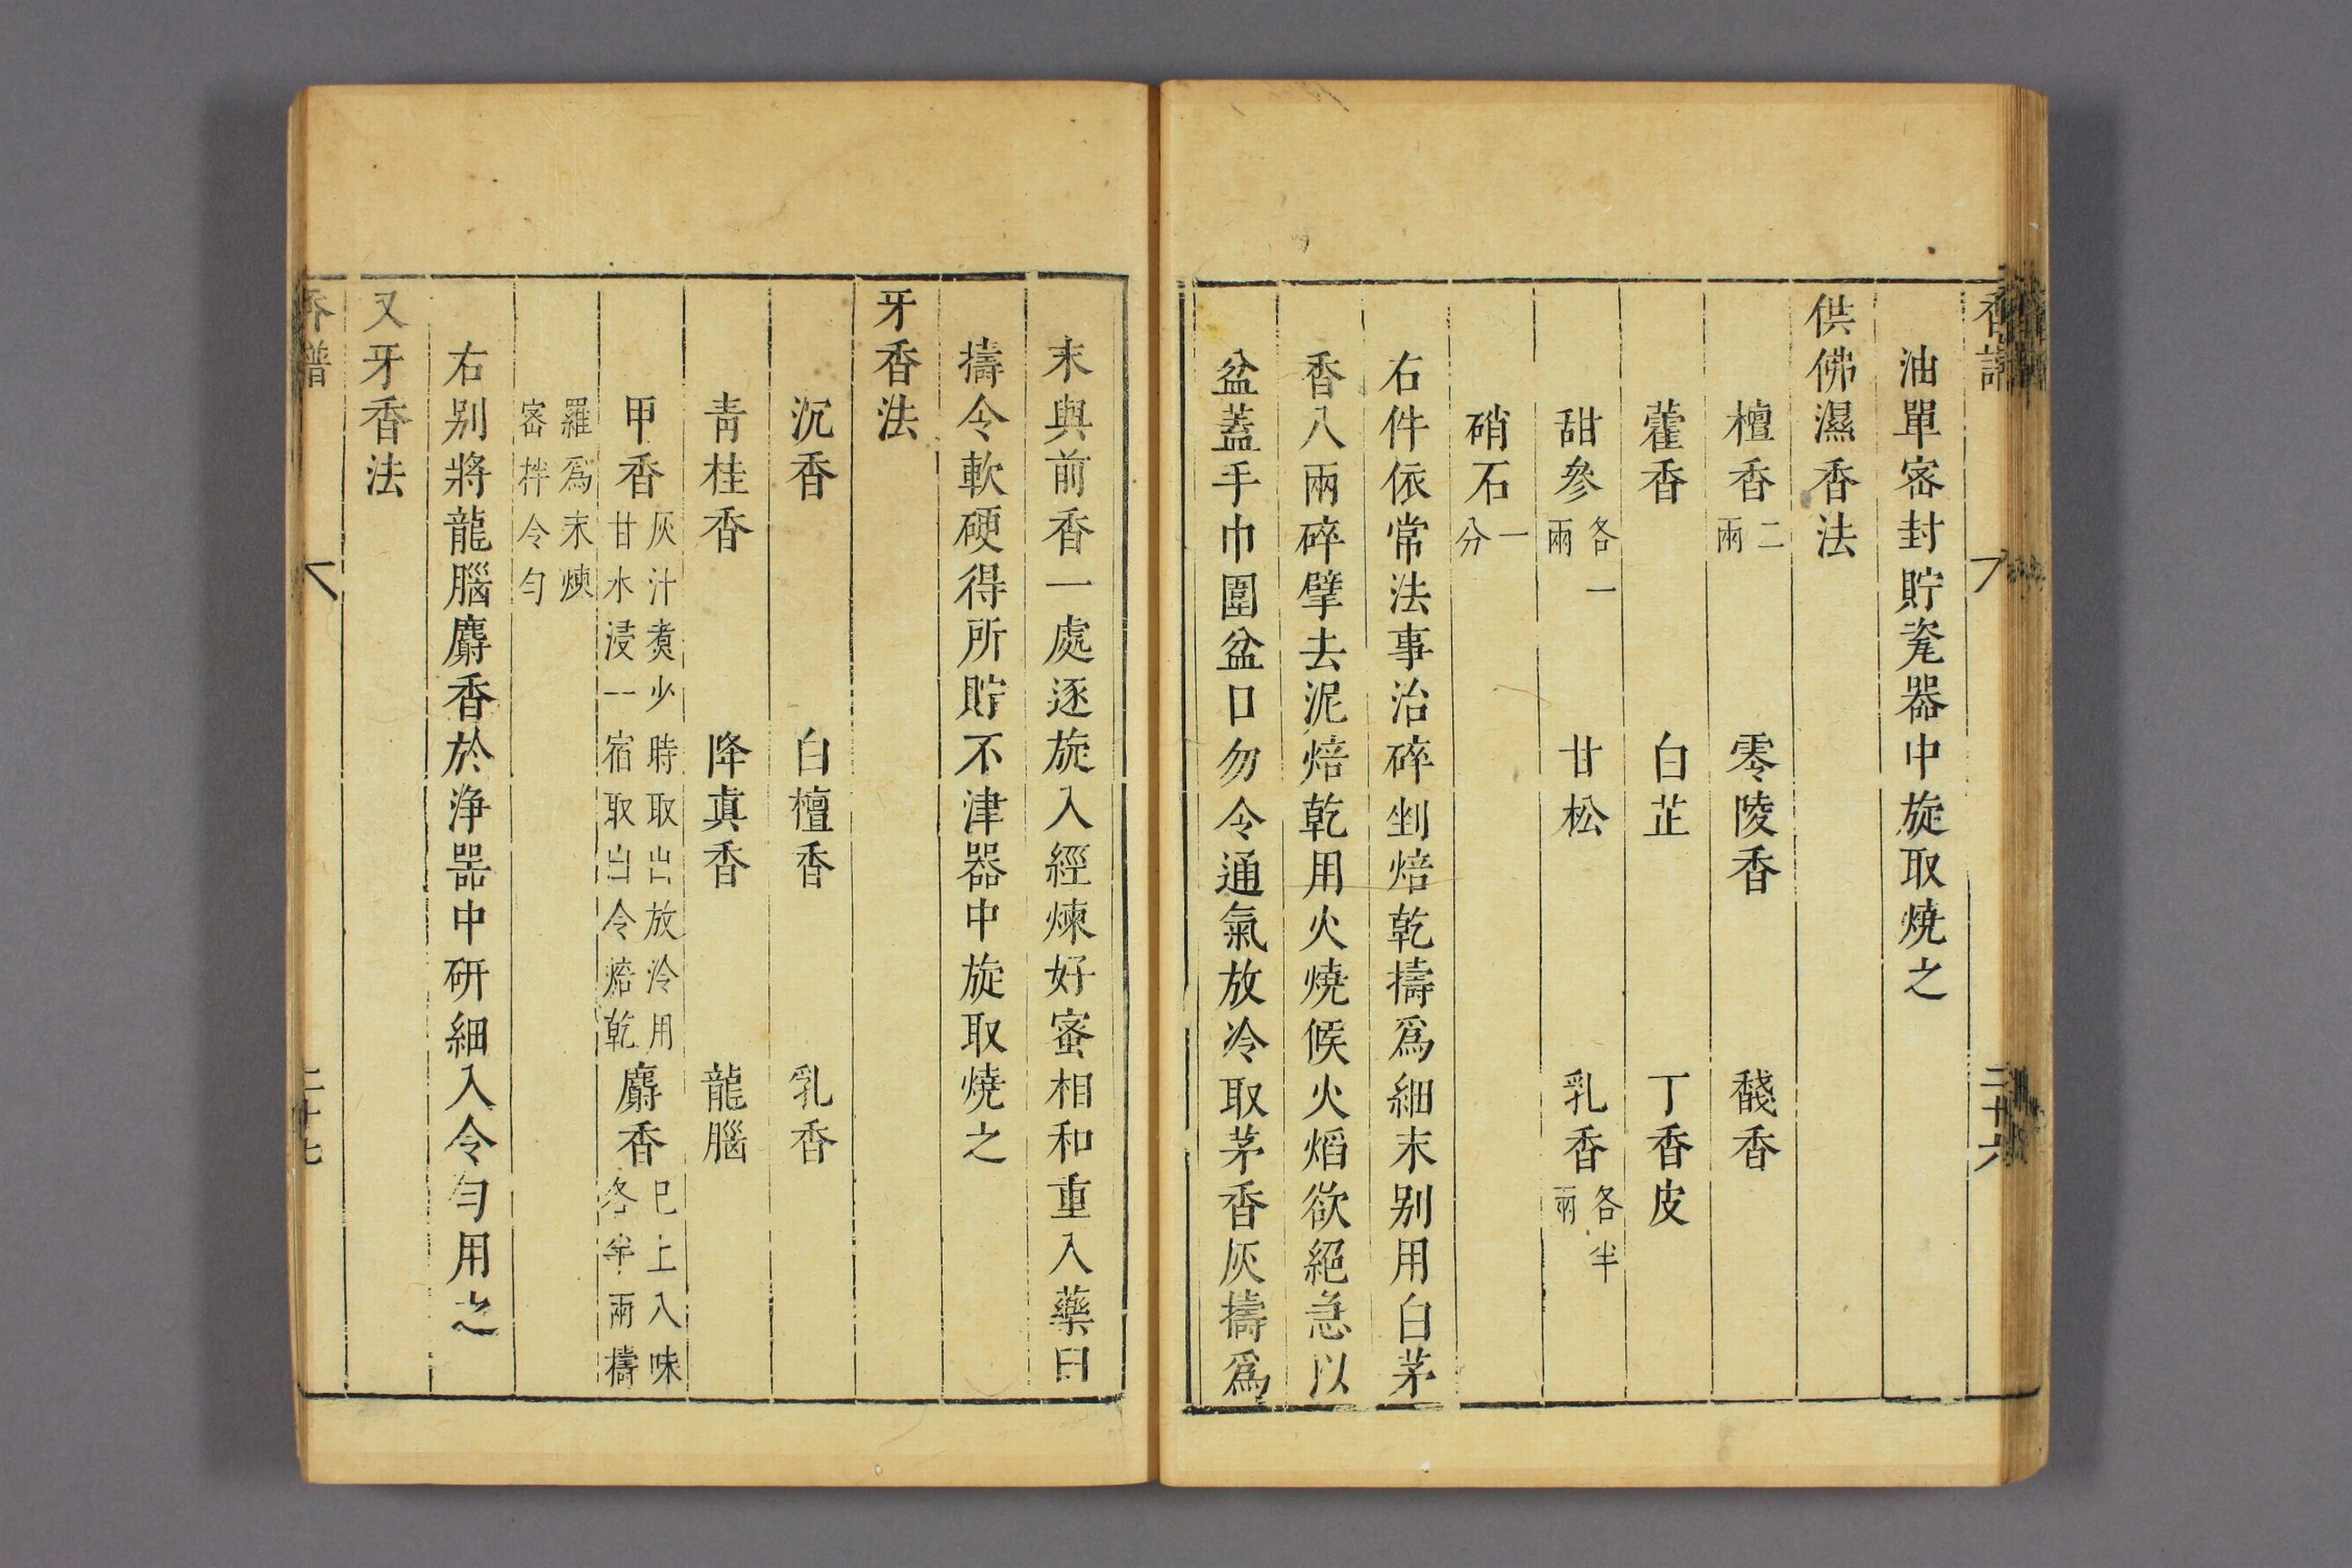 香譜 二十六
油單宻封貯瓷器中旋取燒之
供佛濕香法
檀香二兩 零陵香 馢香
藿香 白芷 丁香皮
甜參各一兩 甘松 乳香各半兩
硝石一分
右件依常法事治碎剉焙乾擣爲細末别用白茅
香八兩碎擘去泥焙乾用火燒候火熖欲絕急以
盆蓋手巾圍盆口勿令通氣放冷取茅香灰擣爲
末與前香一處逐旋入經煉好蜜相和重入藥臼
擣令軟硬得所貯不津器中旋取燒之
牙香法
沉香 白檀香 乳香
青桂香 降真香 龍腦
甲香灰汁煑少時取出放冷用甘水浸一宿取出令焙乾 麝香已上八味各半兩擣
羅爲末煉宻拌令勻
右别將龍腦麝香於浄器中研細入令勻用之
又牙香法
香譜 二十七